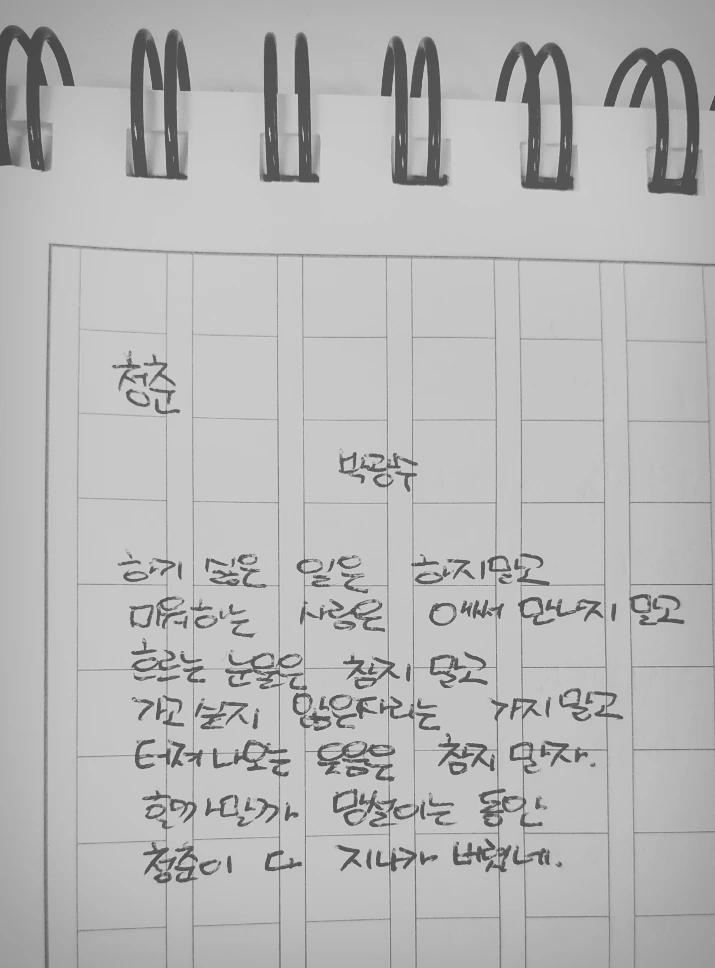 청춘
박광수
하기 싫은 일은 하지말고
미워하는 사람은 애써 만나지 말고
흐르는 눈물은 참지 말고
가고 싶지 않은자리는 가지 말고
터져 나오는 웃음은 참지 말자.
할까말까 망설이는 동안
청춘이 다 지나가 버렸네.